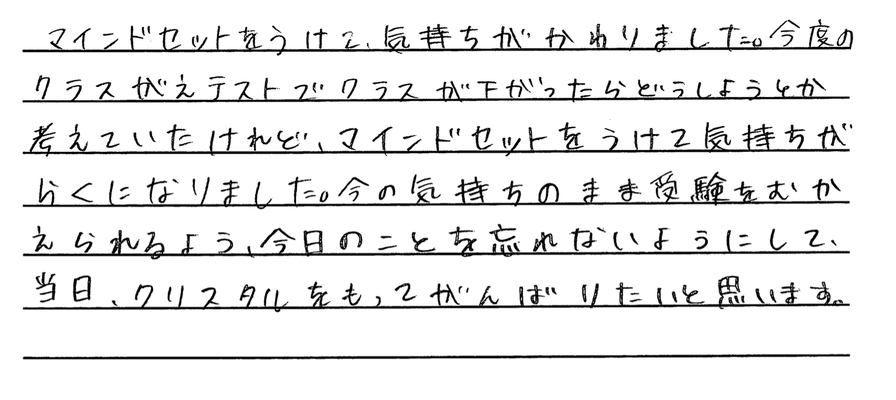 マインドセットをうけて、気持ちがかわりました。今度の
クラスがえテストでクラスが下がったらどうしようとか
考えていたけれど、マインドセットをうけて気持ちが
らくになりました。今の気持ちのまま受験をむか
えられるよう、今日のことを忘れないようにして、
当日、クリスタルをもってがんばりたいと思います。